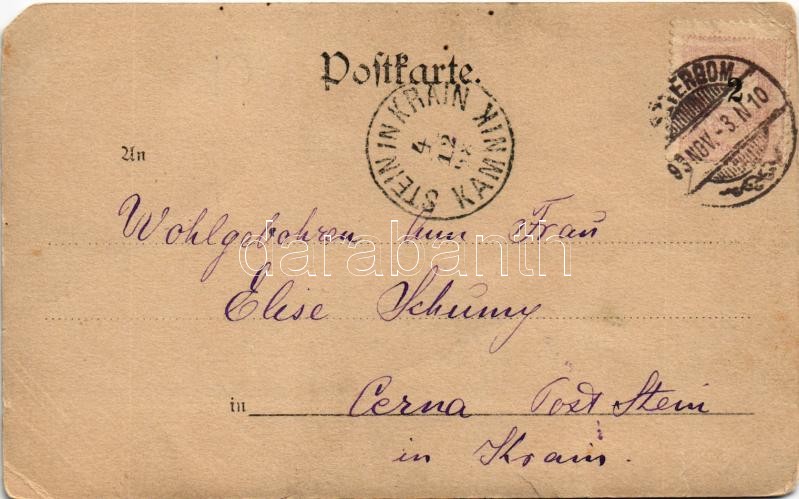 Postkarte.
STEIN IN KRAIN KAMNIK
4
12
2
NOV.-3. N 10
An
Wohlgebohren Frau
Elise Schumy
in Cerna Post Stein
in Krain.
darabanth